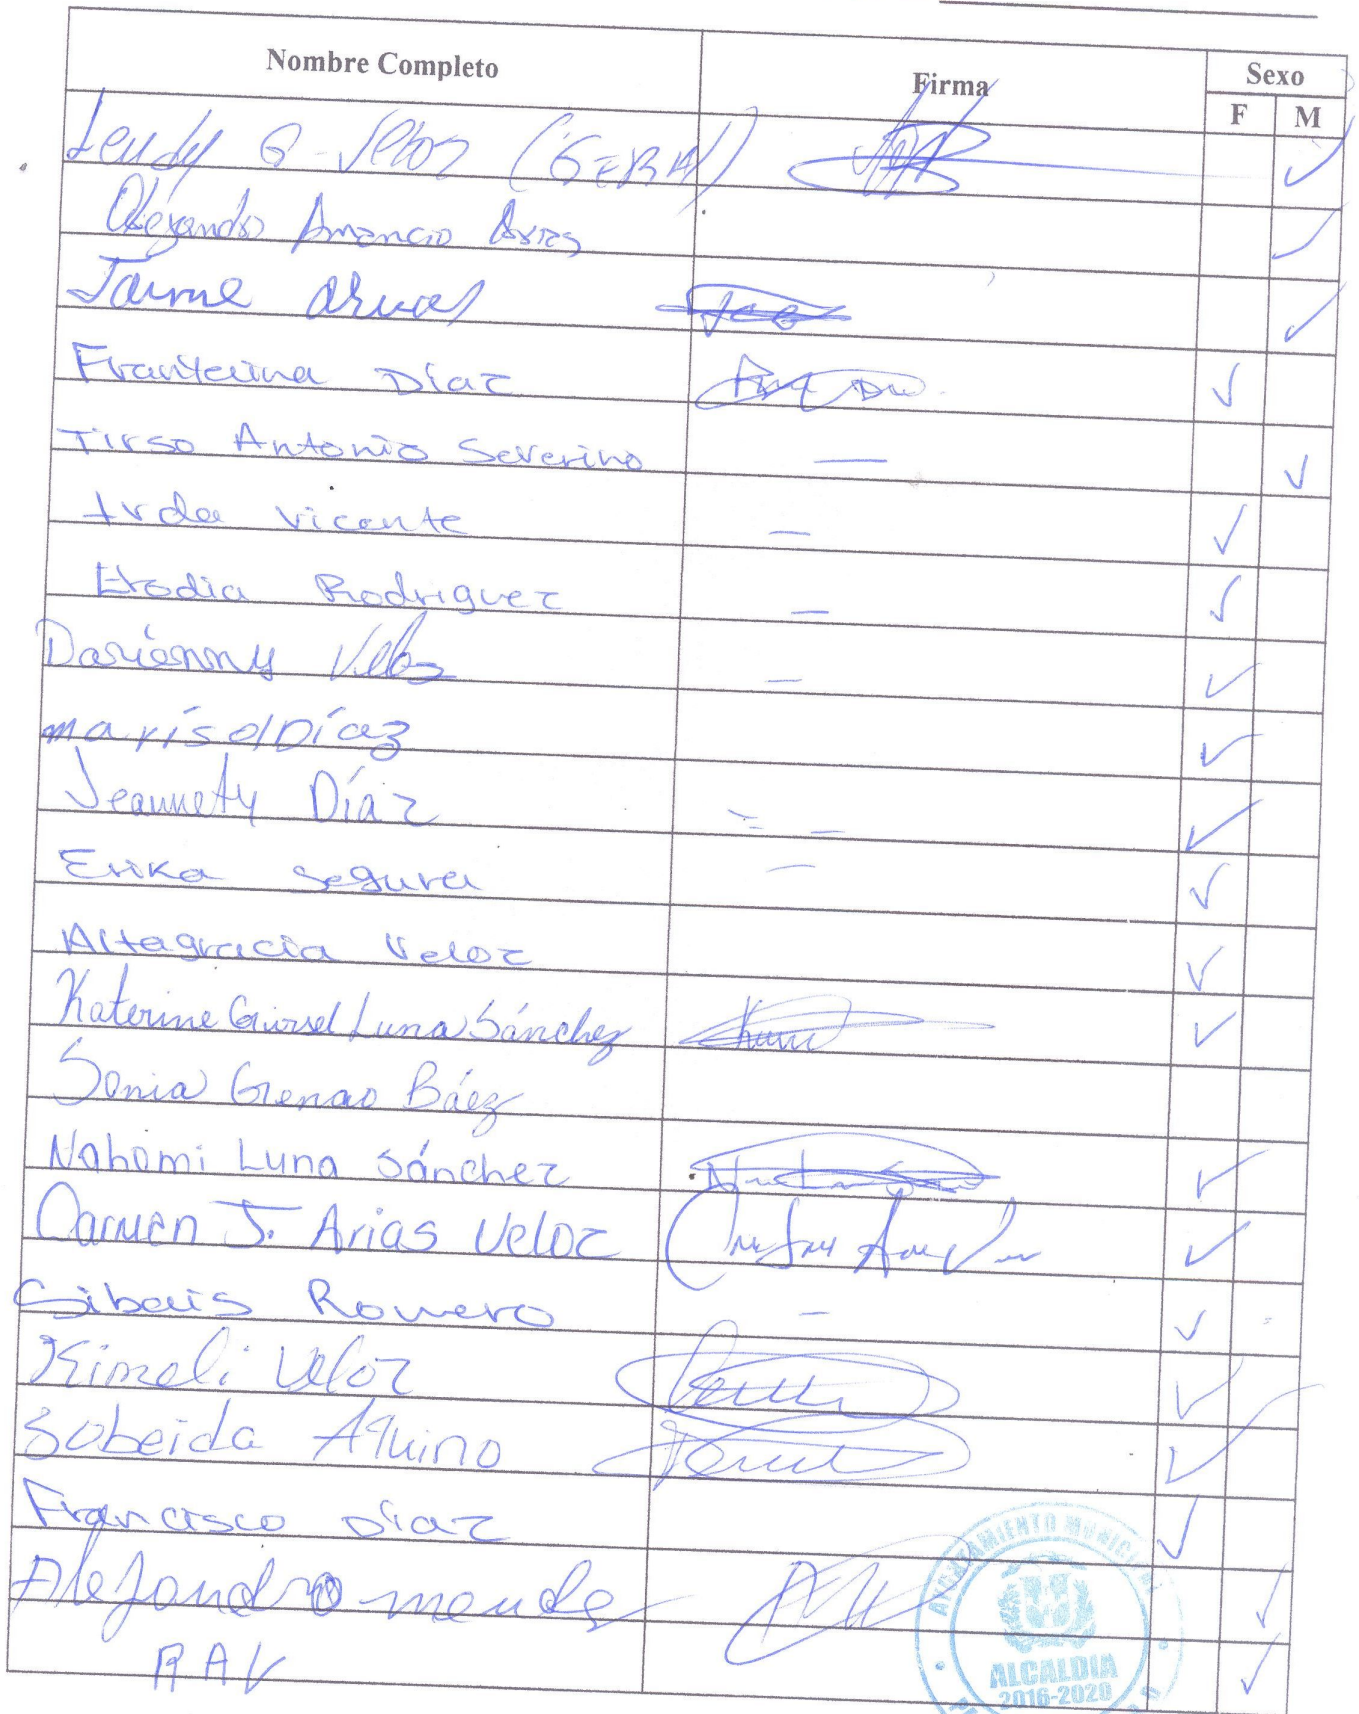 Nombre Completo Firma Sexo
F M
Leudy G. Veloz (GERAL)
Alejandro Amancio Arias
Jaime
Díaz
Tirso Antonio Severino —
Vicente —
Elodia Rodriguez —
Darienny Veloz —
marisol Díaz
Jeannety Díaz
Erika Segura —
Altagracia Veloz
Katerine Luna Sánchez
Sonia Grenao Báez
Nahomi Luna Sánchez
Carmen J. Arias Veloz
Sibeis Romero —
Kimeli Veloz
Sobeida Aquino
Francisco Díaz
Alejandro mende
RAV
AYUNTAMIENTO MUNICIPAL
ALCALDIA
2016-2020